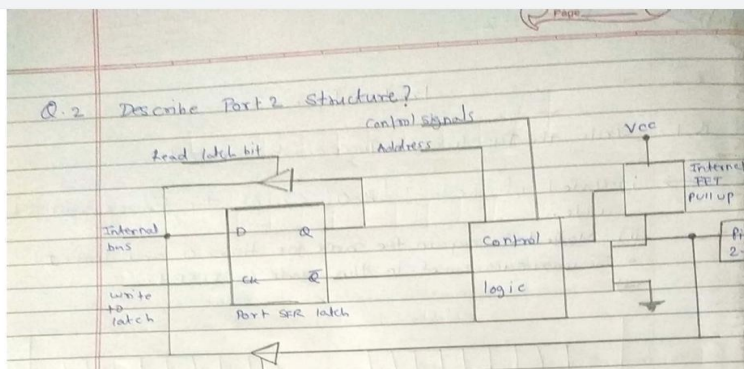 Page
Q.2 Describe Port 2 Structure?
Control signals
Address
Read latch bit
Vcc
Internal
FET
Pull up
Internal
bus
D Q
CLK Q̅
Control
logic
write
to
latch
Port SFR latch